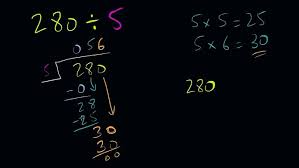 280 ÷ 5
056
5 280
-0
28
-25
30
30
00
5 x 5 = 25
5 x 6 = 30
280